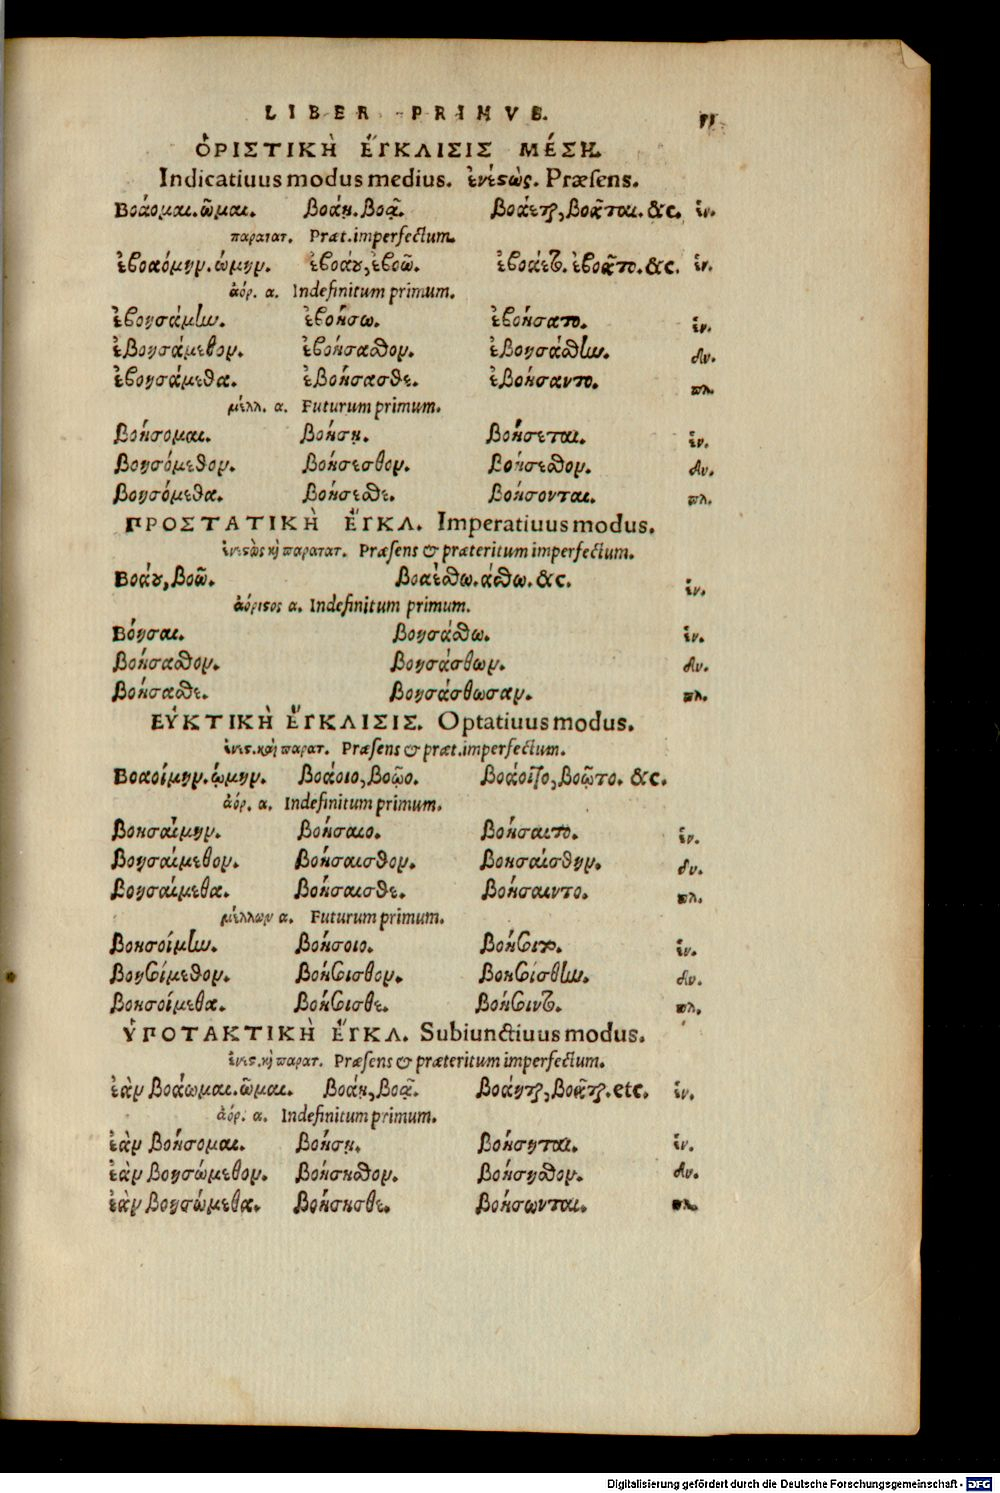 LIBER PRIMVS.
ὉΡΙΣΤΙΚῊ ἜΓΚΛΙΣΙΣ ΜΈΣΗ.
Indicatiuus modus medius. ἐνεστὼς. Præsens.
Βοάομαι.ῶμαι. βοάῃ.βοᾷ. βοάεται, βοᾶται. &c. ἑν.
παρατατ. Præt.imperfectum.
ἐβοαόμην.ώμην. ἐβοάου, ἐβοῶ. ἐβοάετο. ἐβοᾶτο. &c. ἑν.
ἀόρ. α. Indefinitum primum.
ἐβοησάμην. ἐβοήσω. ἐβοήσατο. ἑν.
ἐβοησάμεθον. ἐβοήσασθον. ἐβοησάσθην. δυ.
ἐβοησάμεθα. ἐβοήσασθε. ἐβοήσαντο. πλ.
μέλλ. α. Futurum primum.
βοήσομαι. βοήσῃ. βοήσεται. ἑν.
βοησόμεθον. βοήσεσθον. βοήσεσθον. δυ.
βοησόμεθα. βοήσεσθε. βοήσονται. πλ.
ΠΡΟΣΤΑΤΙΚῊ ἜΓΚΛ. Imperatiuus modus.
ἐνεστὼς καὶ παρατατ. Præsens & præteritum imperfectum.
Βοάου, βοῶ. βοαέσθω.άσθω. &c. ἑν.
ἀόριστος α. Indefinitum primum.
Βόησαι. βοησάσθω. ἑν.
βοήσασθον. βοησάσθων. δυ.
βοήσασθε. βοησάσθωσαν. πλ.
ΕΥ̓ΚΤΙΚῊ ἜΓΚΛΙΣΙΣ. Optatiuus modus.
ἐνεστ. καὶ παρατ. Præsens & præt.imperfectum.
Βοαοίμην.ῴμην. βοάοιο, βοῷο. βοάοιτο, βοῷτο. &c.
ἀόρ. α. Indefinitum primum.
βοησαίμην. βοήσαιο. βοήσαιτο. ἑν.
βοησαίμεθον. βοήσαισθον. βοησαίσθην. δυ.
βοησαίμεθα. βοήσαισθε. βοήσαιντο. πλ.
μέλλων α. Futurum primum.
βοησοίμην. βοήσοιο. βοήσοιτο. ἑν.
βοησοίμεθον. βοήσοισθον. βοησοίσθην. δυ.
βοησοίμεθα. βοήσοισθε. βοήσοιντο. πλ.
ὙΠΟΤΑΚΤΙΚῊ ἜΓΚΛ. Subiunctiuus modus.
ἐνεστ. καὶ παρατ. Præsens & præteritum imperfectum.
ἐὰν βοάωμαι.ῶμαι. βοάῃ, βοᾷ. βοάηται, βοᾶται. etc. ἑν.
ἀόρ. α. Indefinitum primum.
ἐὰν βοήσομαι. βοήσῃ. βοήσηται. ἑν.
ἐὰν βοησώμεθον. βοήσησθον. βοήσησθον. δυ.
ἐὰν βοησώμεθα. βοήσησθε. βοήσωνται. πλ.
Digitalisierung gefördert durch die Deutsche Forschungsgemeinschaft - DFG